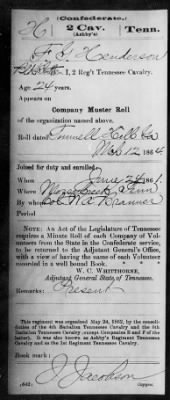 (Confederate.)
H 2 Cav. Tenn.
(Ashby's)
F. Henderson
Co. I, 2 Reg't Tennessee Cavalry.
Age 24 years.
Appears on
Company Muster Roll
of the organization named above.
Roll dated Tunnell Hill Ga
Mch 12 1864
Joined for duty and enrolled—
When June 24, 1861.
Where Tenn
By whom Col W A Branner
Period
NOTE: An Act of the Legislature of Tennessee
requires a Minute Roll of each Company of Vol-
unteers from the State in the Confederate service,
to be returned to the Adjutant General's Office,
with a view of having the name of each Volunteer
recorded in a well bound Book.
W. C. WHITTHORNE,
Adjutant General State of Tennessee.
Remarks: Present
This regiment was organized May 24, 1862, by the consoli-
dation of the 4th Battalion Tennessee Cavalry and the 5th
Battalion Tennessee Cavalry (except Companies E and F of the
latter). It was also known as Ashby's Regiment Tennessee
Cavalry and as the 1st Regiment Tennessee Cavalry.
Book mark:
J. Jacobson
(642) Copyist.